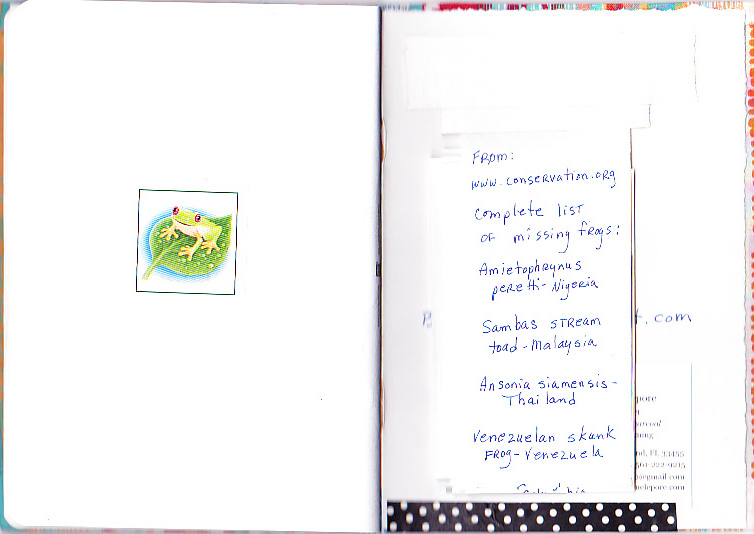 FROM:
www.conservation.org
Complete list
of missing frogs:
Amietophrynus
peretti - Nigeria
Sambas stream
toad - Malaysia
Ansonia siamensis -
Thailand
Venezuelan skunk
Frog - Venezuela
t.com
pore
nd, FL 33455
561-222-9215
@gmail.com
nelepore.com